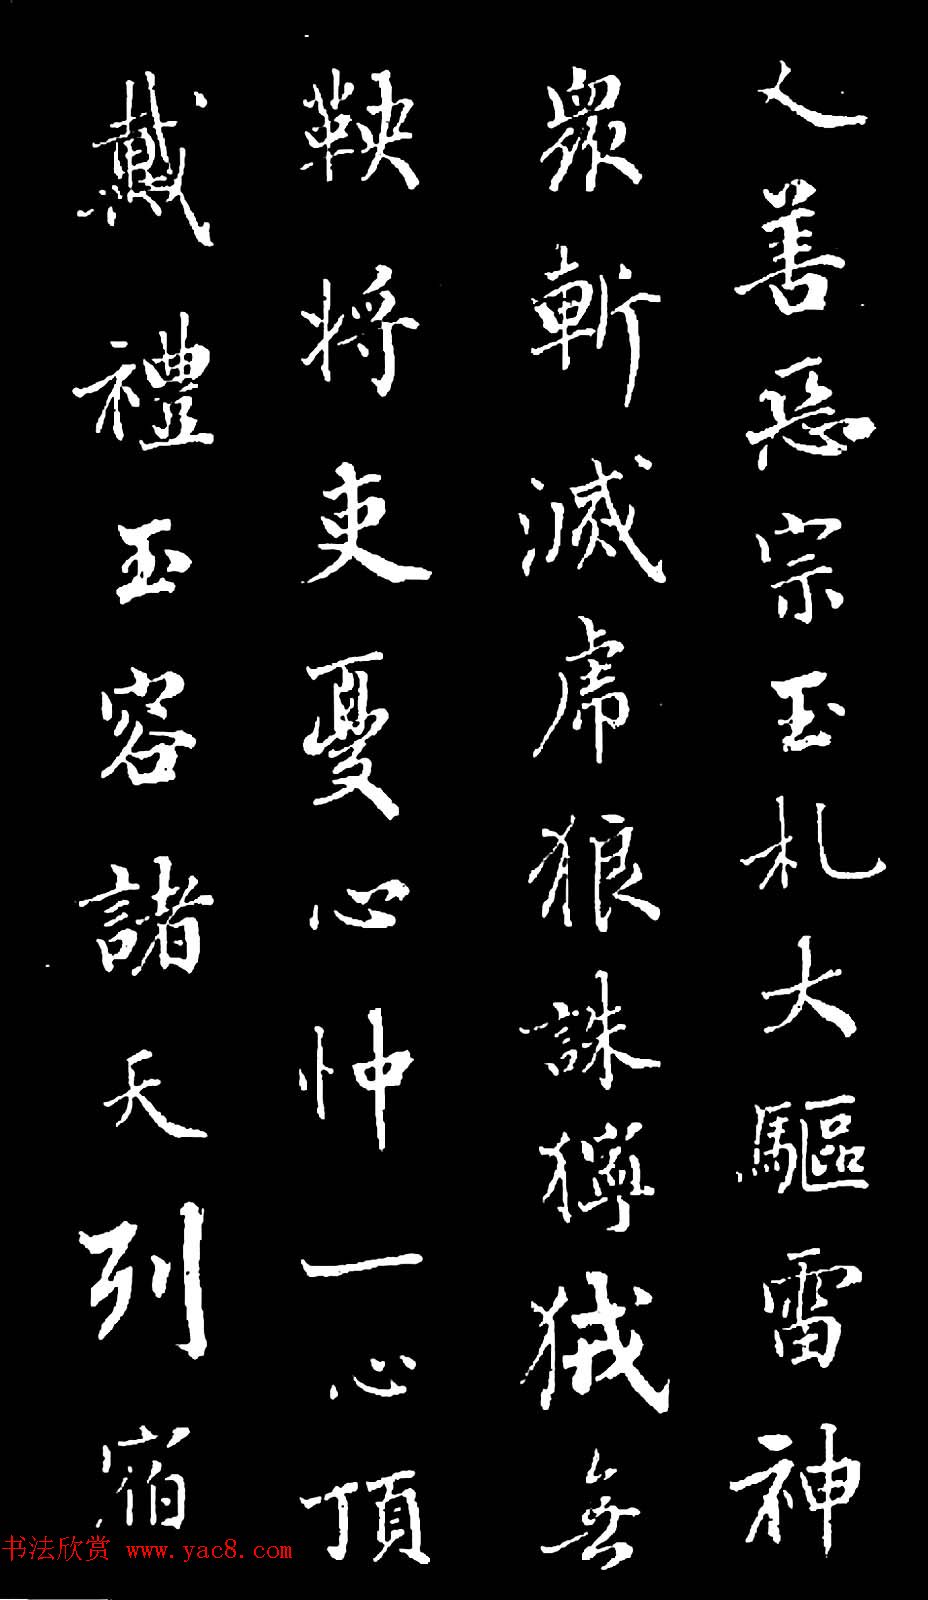 人善惡宗玉札大驅雷神
眾斬滅虎狼誅獰狘無
鞅將吏憂心忡一心頂
戴禮玉容諸天列宿
书法欣赏 www.yac8.com